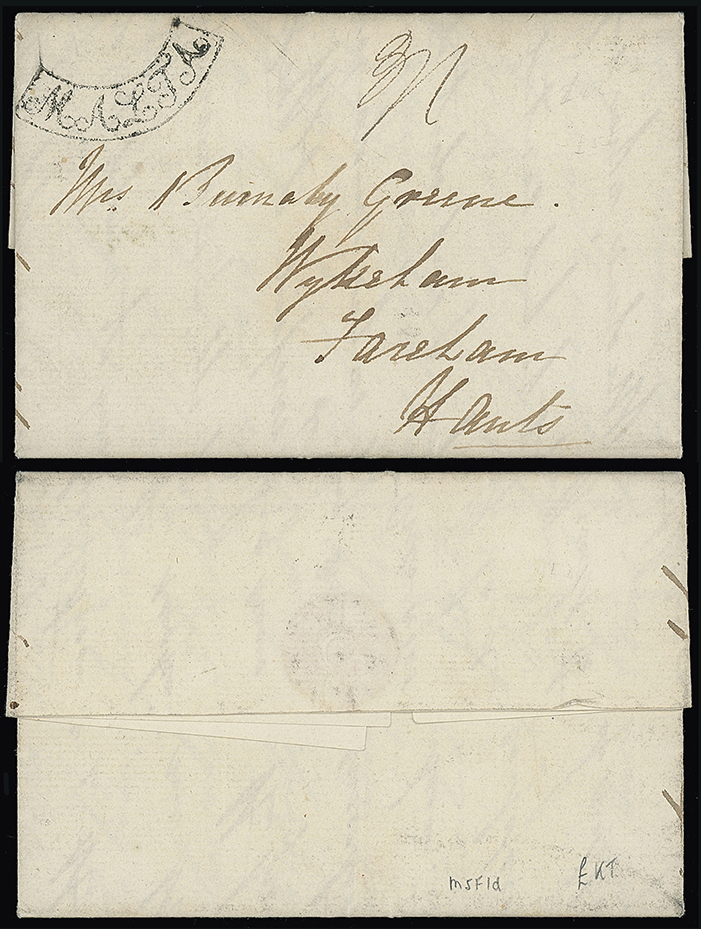 MALTA
Mrs Burnaby Greene.
Wykeham
Fareham
Hants
m5F1d
£ KT